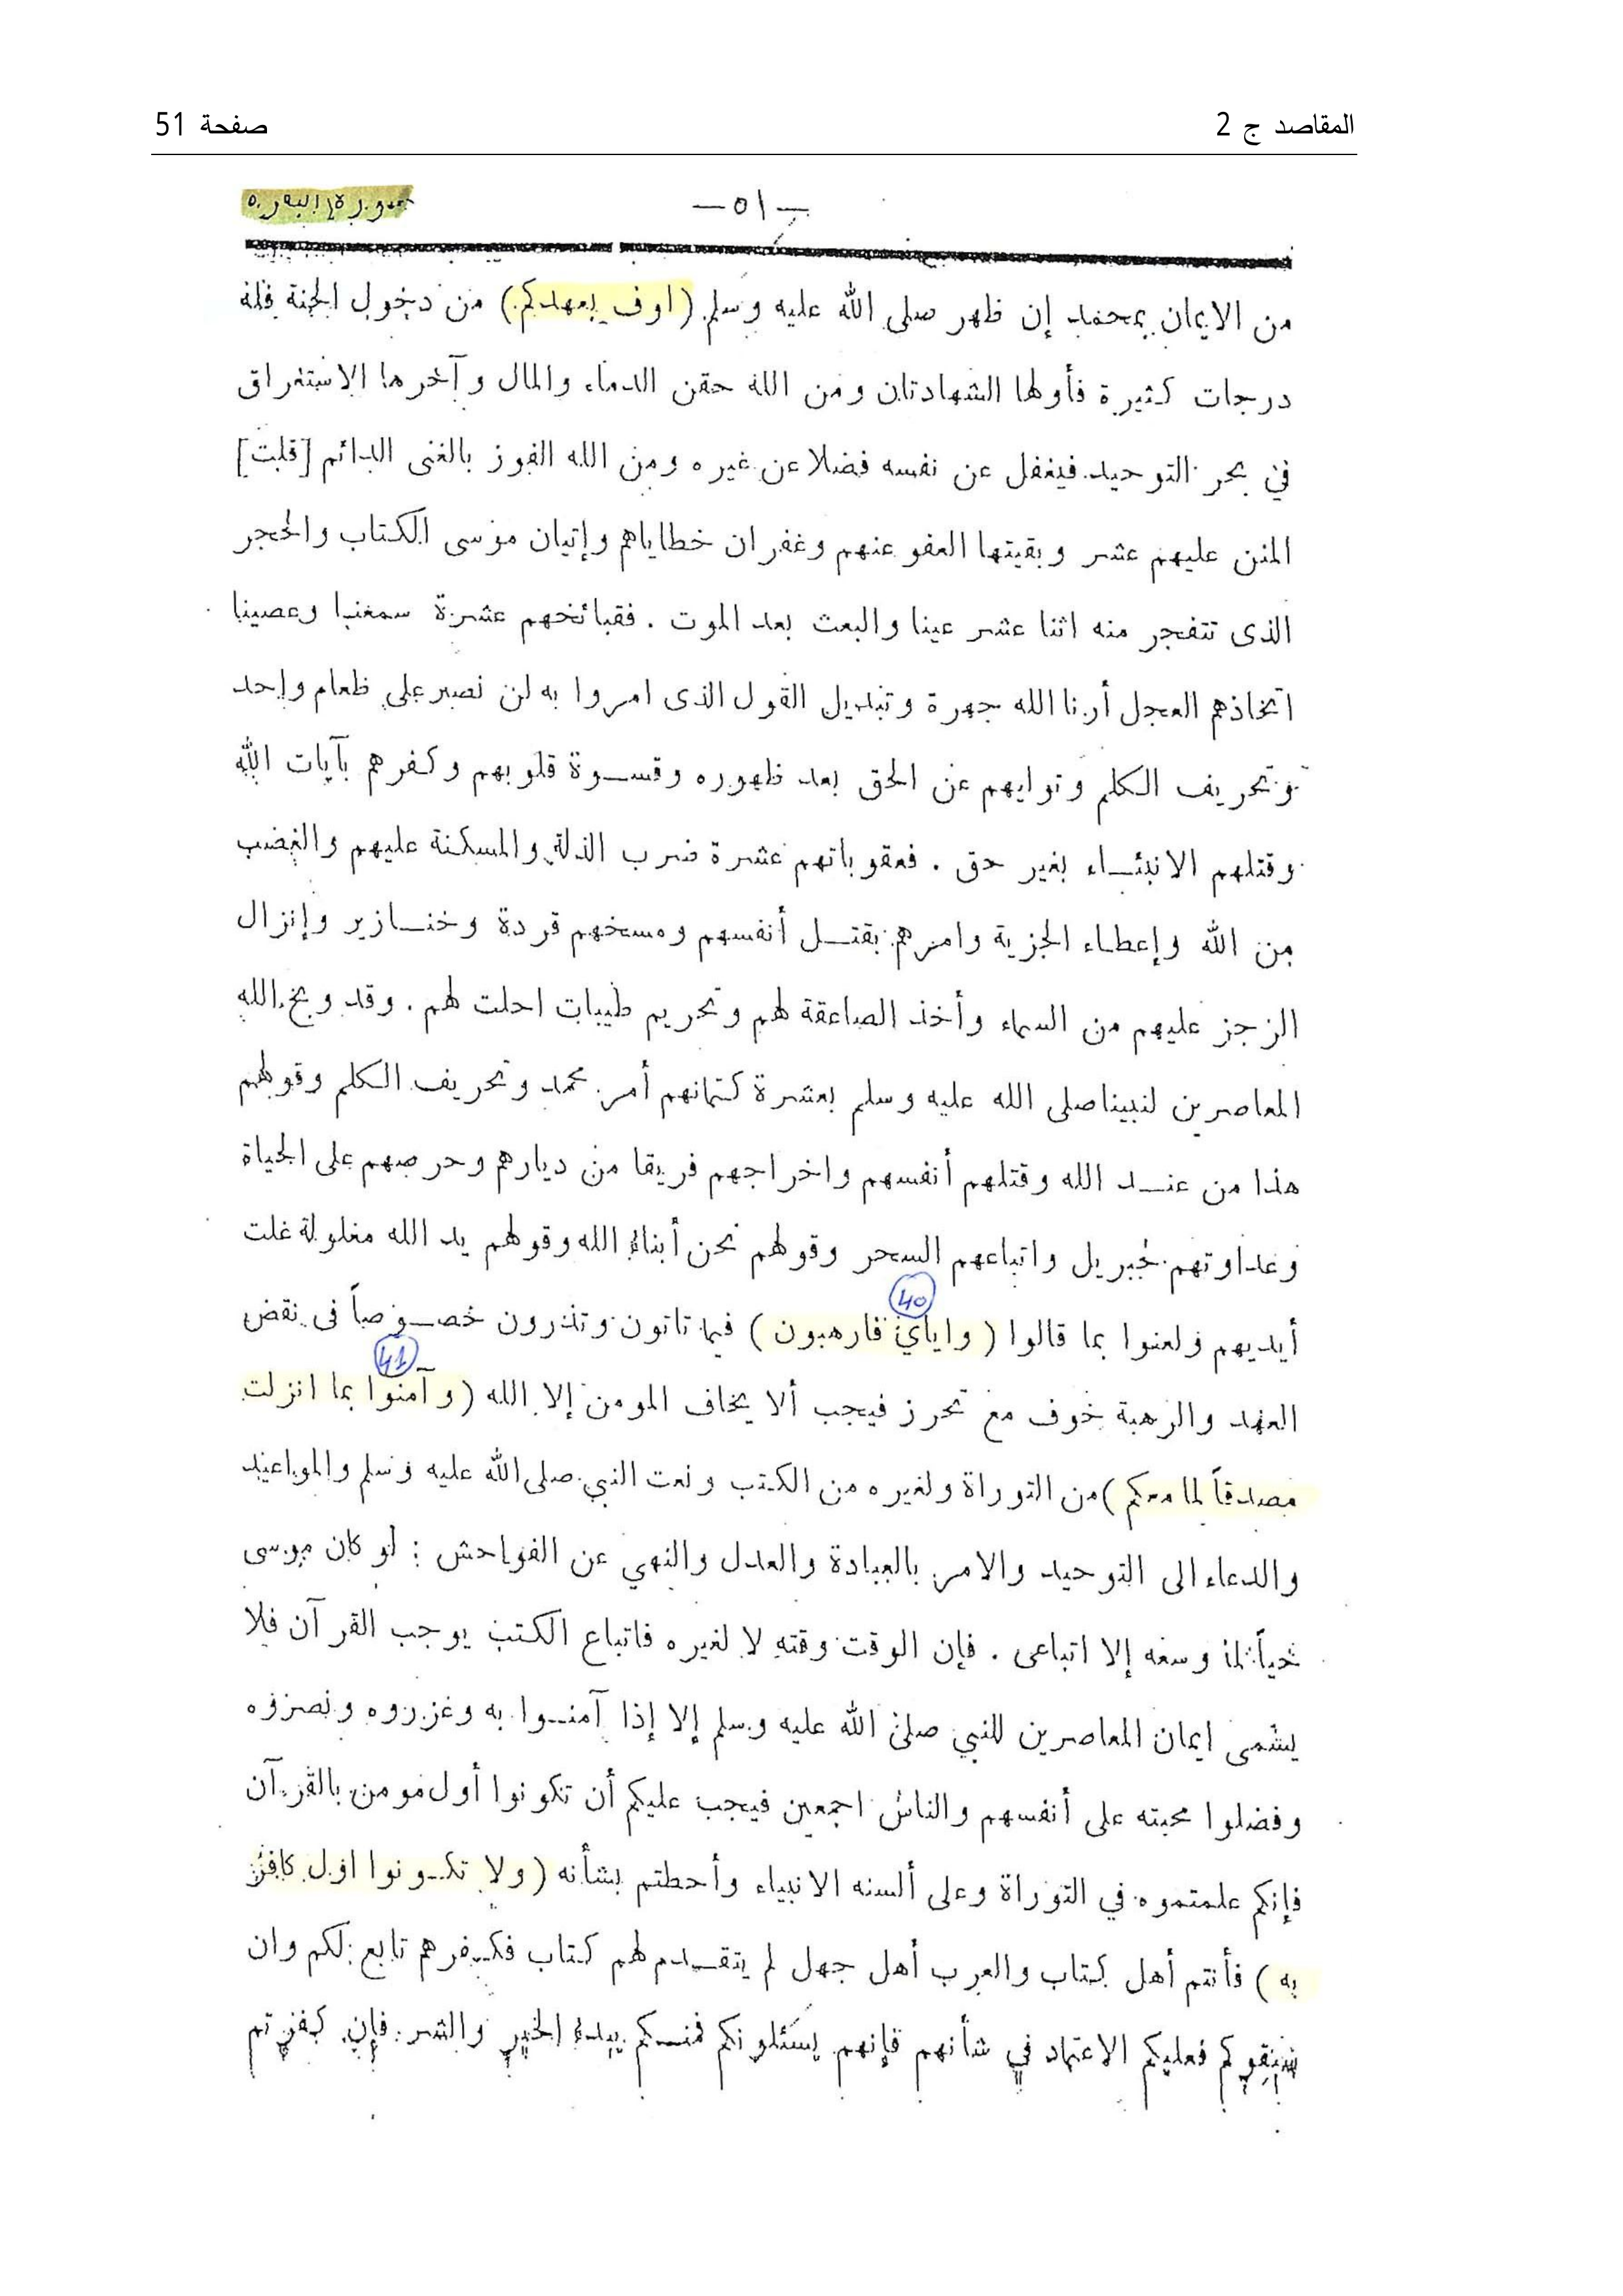 المقاصد ج 2
صفحة 51
سورة البقرة
— ٥١ —
من الايمان بمحمد إن ظهر صلى الله عليه وسلم (اوف بعهدكم) من دخول الجنة فله
درجات كثيرة فأولها الشهادتان ومن الله حقن الدماء والمال وآخرها الاستغراق
في بحر التوحيد فيغفل عن نفسه فضلا عن غيره ومن الله الفوز بالغنى الدائم [قلت]
المنن عليهم عشر وبقيتها العفو عنهم وغفران خطاياهم وإتيان موسى الكتاب والحجر
الذى تتفجر منه اثنا عشر عينا والبعث بعد الموت . فقبائحهم عشرة سمعنا وعصينا
اتخاذهم العجل أرنا الله جهرة وتبديل القول الذى امروا به لن نصبر على طعام واحد
وتحريف الكلم وتوليهم عن الحق بعد ظهوره وقسوة قلوبهم وكفرهم بآيات الله
وقتلهم الانبئاء بغير حق . فعقوباتهم عشرة ضرب الذلة والمسكنة عليهم والغضب
من الله وإعطاء الجزية وامرهم بقتل أنفسهم ومسخهم قردة وخنازير وإنزال
الرجز عليهم من السماء وأخذ الصاعقة لهم وتحريم طيبات احلت لهم . وقد وبخ الله
المعاصرين لنبينا صلى الله عليه وسلم بعشرة كتمانهم أمر محمد وتحريف الكلم وقولهم
هذا من عند الله وقتلهم أنفسهم واخراجهم فريقا من ديارهم وحرصهم على الحياة
وعداوتهم لجبريل واتباعهم السحر وقولهم نحن أبناء الله وقولهم يد الله مغلولة غلت
أيديهم ولعنوا بما قالوا (واياي فارهبون) 40 فيما تاتون وتذرون خصوصاً فى نقض
العهد والرهبة خوف مع تحرز فيجب ألا يخاف المومن إلا الله 41 (وآمنوا بما انزلت
مصدقاً لما معكم) من التوراة ولغيره من الكتب ونعت النبي صلى الله عليه وسلم والمواعيد
والدعاء الى التوحيد والامر بالعبادة والعدل والنهي عن الفواحش : لو كان موسى
حياً لما وسعه إلا اتباعى . فإن الوقت وقته لا لغيره فاتباع الكتب يوجب القرآن فلا
يسمى ايمان المعاصرين للنبي صلى الله عليه وسلم إلا إذا آمنوا به وعزروه ونصروه
وفضلوا محبته على أنفسهم والناس اجمعين فيجب عليكم أن تكونوا أول مومن بالقرآن
فإنكم علمتموه في التوراة وعلى ألسنه الانبياء وأحطتم بشأنه (ولا تكونوا اول كافر
به) فأنتم أهل كتاب والعرب أهل جهل لم يتقدم لهم كتاب فكفرهم تابع لكم وان
سبقوكم فعليكم الاعتماد في شأنهم فإنهم يسئلونكم فمنكم يبدء الخير والشر فإن كفرتم